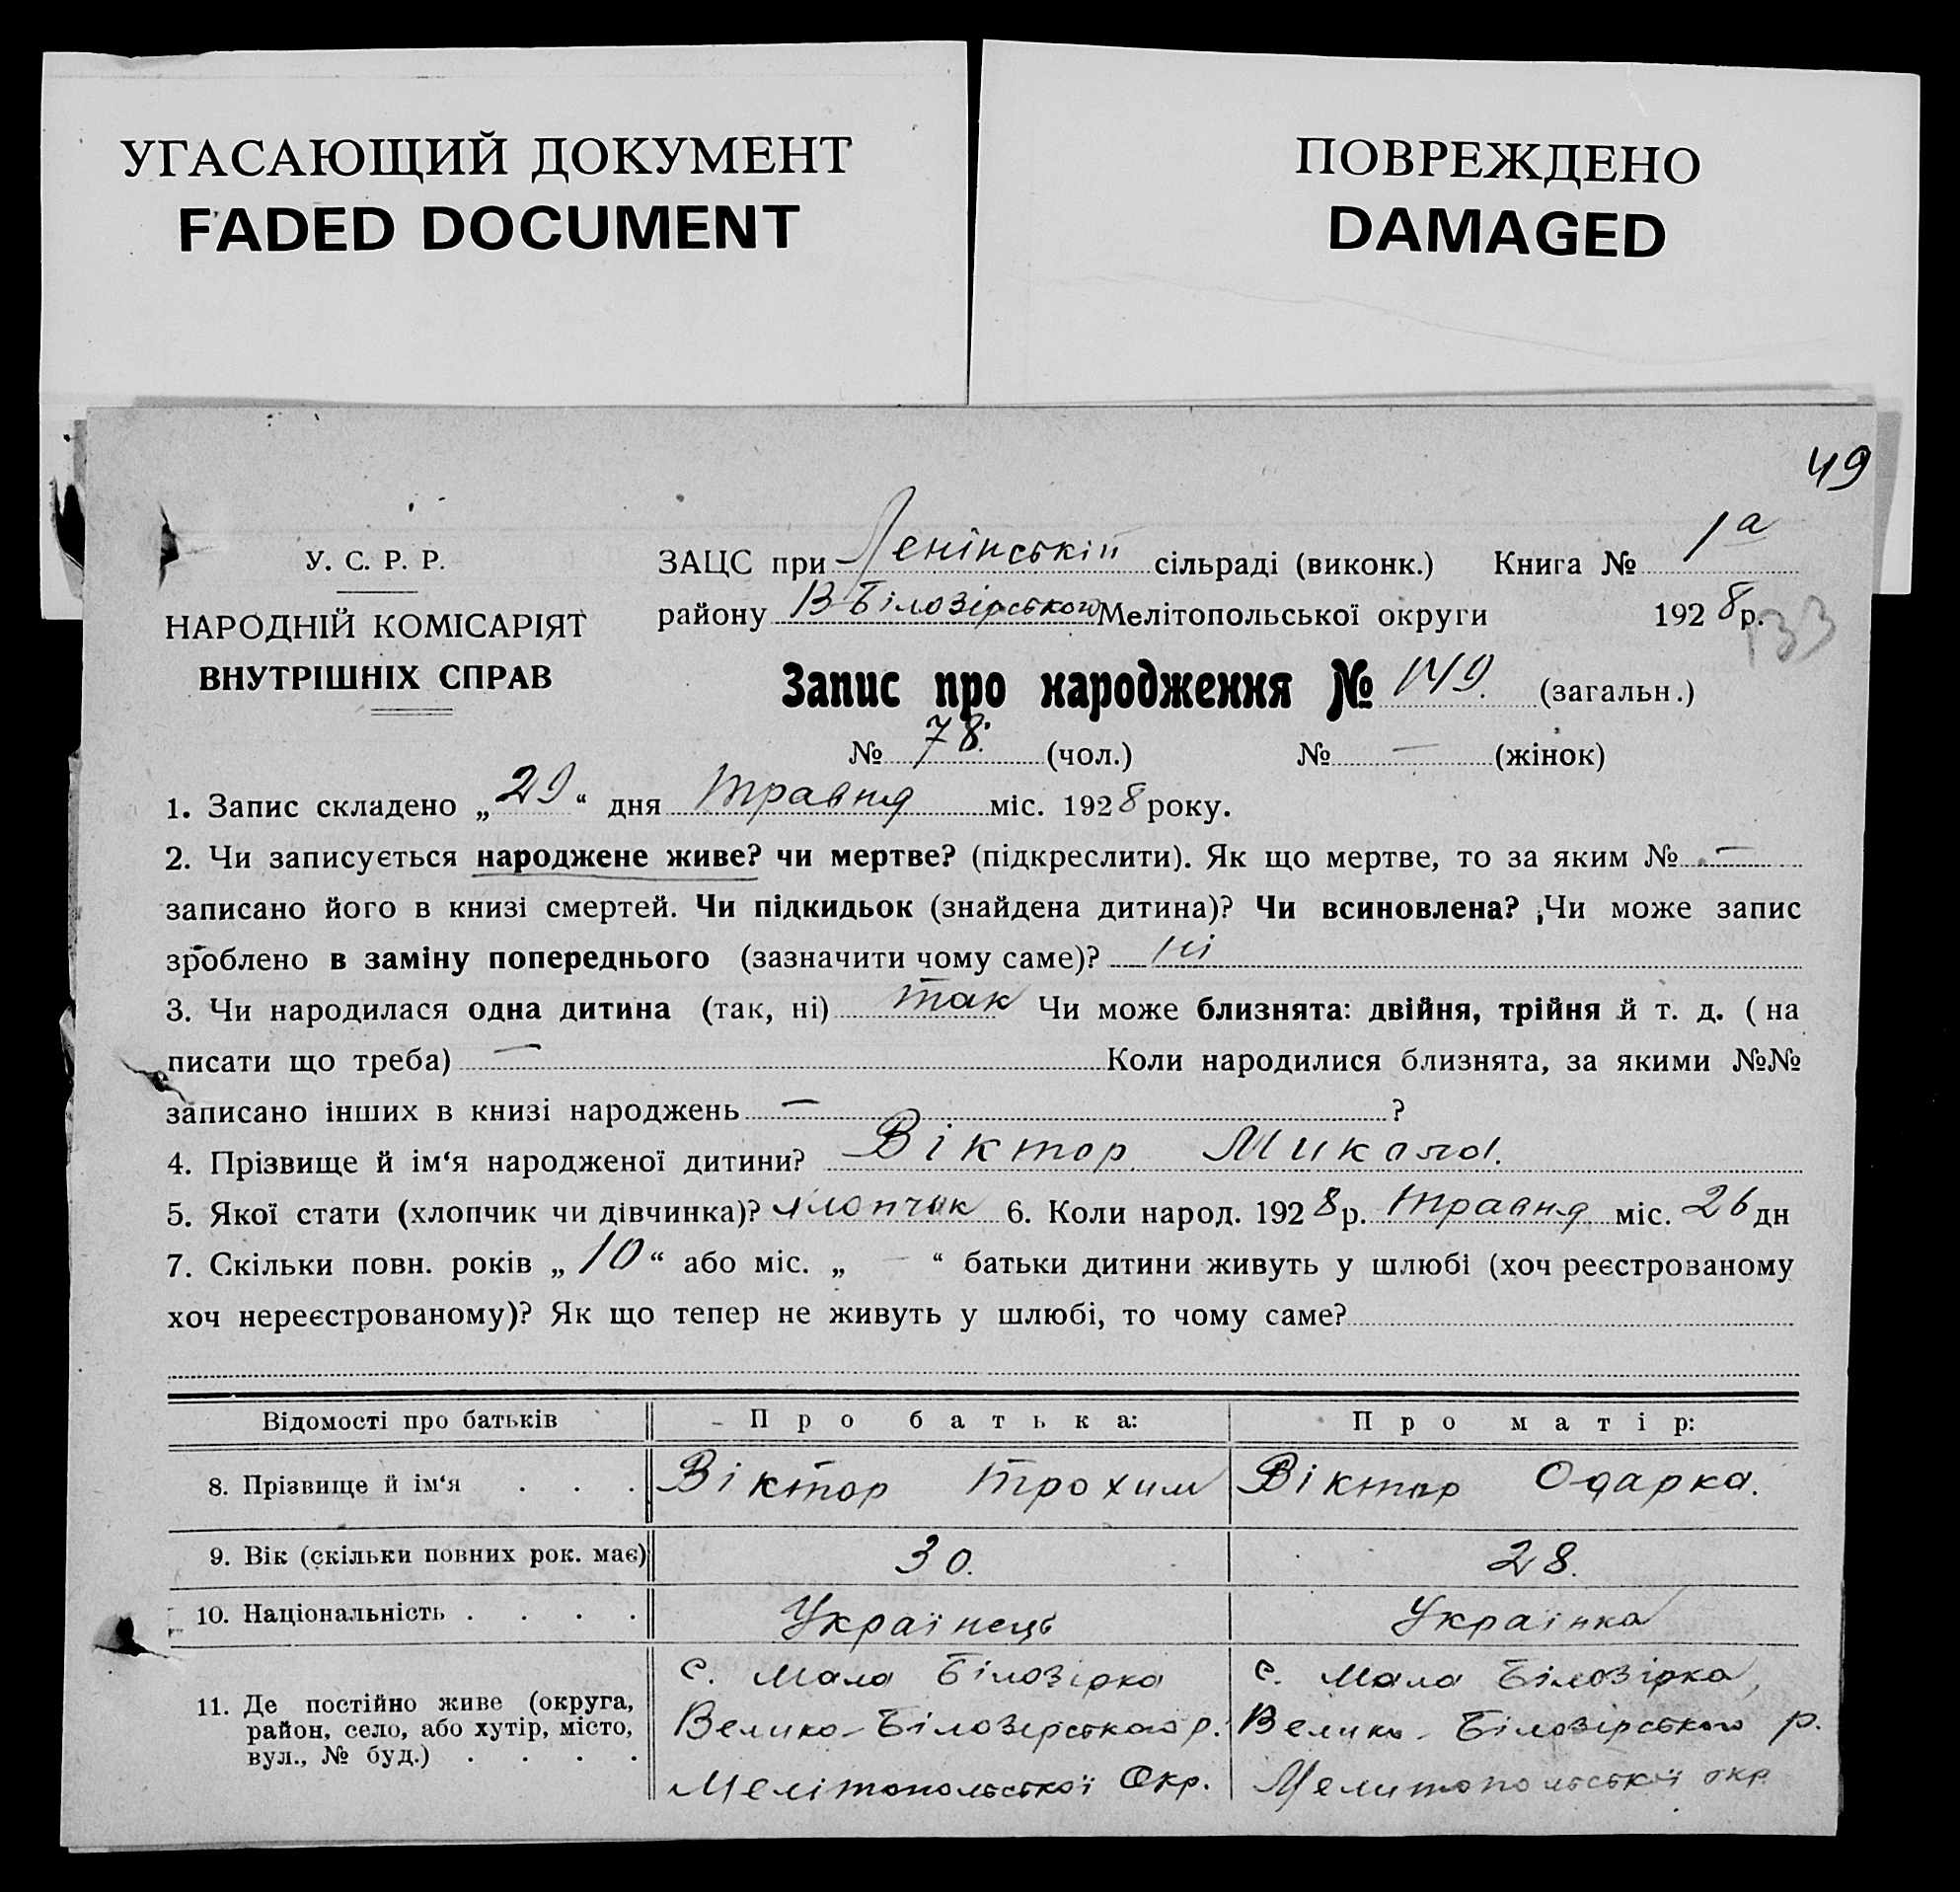 УГАСАЮЩИЙ ДОКУМЕНТ
FADED DOCUMENT
ПОВРЕЖДЕНО
DAMAGED
49
У. С. Р. Р.
НАРОДНІЙ КОМІСАРІЯТ
ВНУТРІШНІХ СПРАВ
ЗАЦС при Ленінській сільраді (виконк.) Книга № 1а
району В-Білозірського Мелітопольської округи 1928 р.
133
Запис про народження № 149. (загальн.)
№ 78. (чол.) № — (жінок)
1. Запис складено „29“ дня травня міс. 1928 року.
2. Чи записується народжене живе? чи мертве? (підкреслити). Як що мертве, то за яким № —
записано його в книзі смертей. Чи підкидьок (знайдена дитина)? Чи всиновлена? Чи може запис
зроблено в заміну попереднього (зазначити чому саме)? ні
3. Чи народилася одна дитина (так, ні) так Чи може близнята: двійня, трійня й т. д. (на
писати що треба) — Коли народилися близнята, за якими №№
записано інших в книзі народжень — ?
4. Прізвище й ім‘я народженої дитини? Віктор Микола.
5. Якої стати (хлопчик чи дівчинка)? хлопчик 6. Коли народ. 1928 р. травня міс. 26 дн
7. Скільки повн. років „10“ або міс. „ — “ батьки дитини живуть у шлюбі (хоч реєстрованому
хоч нереєстрованому)? Як що тепер не живуть у шлюбі, то чому саме?
Відомості про батьків Про батька: Про матір:
8. Прізвище й ім‘я . . . Віктор Трохим Віктор Одарка.
9. Вік (скільки повних рок. має) 30. 28.
10. Національність . . . . Українець Українка
11. Де постійно живе (округа,
район, село, або хутір, місто,
вул., № буд.) . . . .
с. Мала Білозірка
Велико-Білозірського р.
Мелітопольської Окр.
с. Мала Білозірка,
Велико-Білозірського р.
Мелитопольської окр